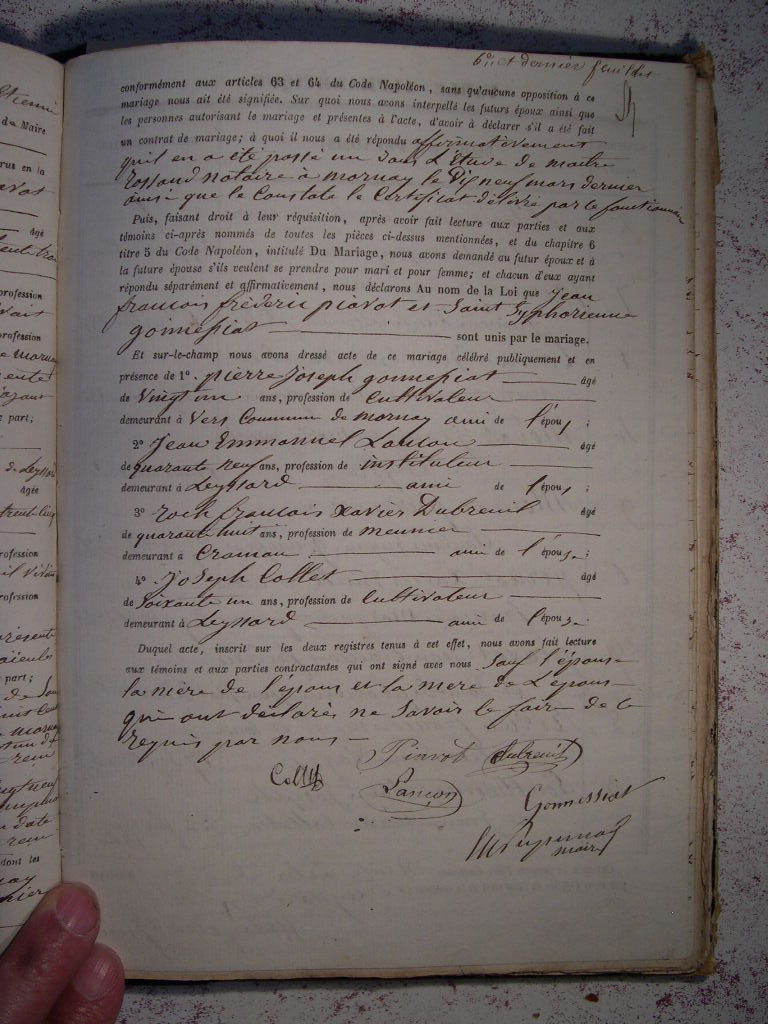 6e et dernier feuillet
conformément aux articles 63 et 64 du Code Napoléon, sans qu'aucune opposition à ce
mariage nous ait été signifiée. Sur quoi nous avons interpellé les futurs époux ainsi que
les personnes autorisant le mariage et présentes à l'acte, d'avoir à déclarer s'il a été fait
un contrat de mariage; à quoi il nous a été répondu affirmativement
qu'il en a été passé un dans L'Etude de maitre
rossand notaire à mornay le Dix neuf mars dernier
ainsi que le Constate le Certificat délivré par le fonctionnaire
Puis, faisant droit à leur réquisition, après avoir fait lecture aux parties et aux
témoins ci-après nommés de toutes les pièces ci-dessus mentionnées, et du chapitre 6
titre 5 du Code Napoléon, intitulé Du Mariage, nous avons demandé au futur époux et à
la future épouse s'ils veulent se prendre pour mari et pour femme; et chacun d'eux ayant
répondu séparément et affirmativement, nous déclarons Au nom de la Loi que Jean
francois fréderic pravot et Saint Syphorienne
gonnessiat sont unis par le mariage.
Et sur-le-champ nous avons dressé acte de ce mariage célébré publiquement et en
présence de 1° pierre Joseph gonnessiat âgé
de Vingt un ans, profession de Cultivateur
demeurant à Vers Commun de mornay ami de l'épouse;
2° Jean Emmanuel Lancon âgé
de quarante neuf ans, profession de instituteur
demeurant à Leyssard ami de l'époux;
3° roch francois Xavier Dubreuil âgé
de quarante huit ans, profession de meunier
demeurant à Cramau ami de l'épouse;
4° Joseph Collet âgé
de Soixante un ans, profession de Cultivateur
demeurant à Leyssard ami de l'épouse.
Duquel acte, inscrit sur les deux registres tenus à cet effet, nous avons fait lecture
aux témoins et aux parties contractantes qui ont signé avec nous Sauf l'épouse
la mère de l'époux et la mère de L'epouse
qui ont déclarés ne Savoir le faire de ce
requis par nous
Pinvot Dubreuil
Collet Lançon
Gonnessiat
maire